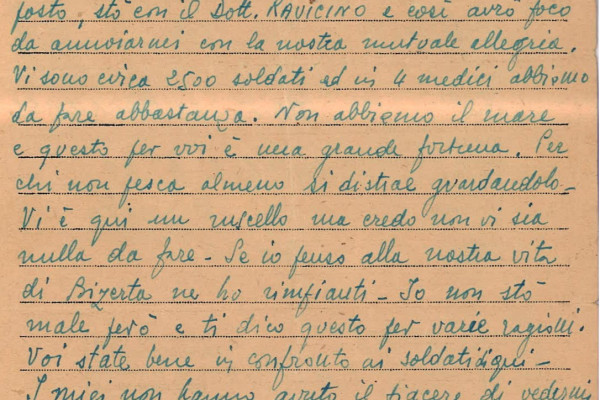 posto, stò con il Dott. RAVICINO e così avrò poco
da annoiarmi con la nostra mutuale allegria.
Vi sono circa 2500 soldati ed in 4 medici abbiamo
da fare abbastanza. Non abbiamo il mare
e questo per voi è una grande fortuna. Per
chi non pesca almeno si distrae guardandolo -
Vi è qui un ruscello ma credo non vi sia
nulla da fare - Se io penso alla nostra vita
di Bizerta ne ho rimpianti - Io non stò
male però e ti dico questo per varie ragioni.
Voi state bene in confronto ai soldati di qui -
I miei non hanno avuto il piacere di vedermi